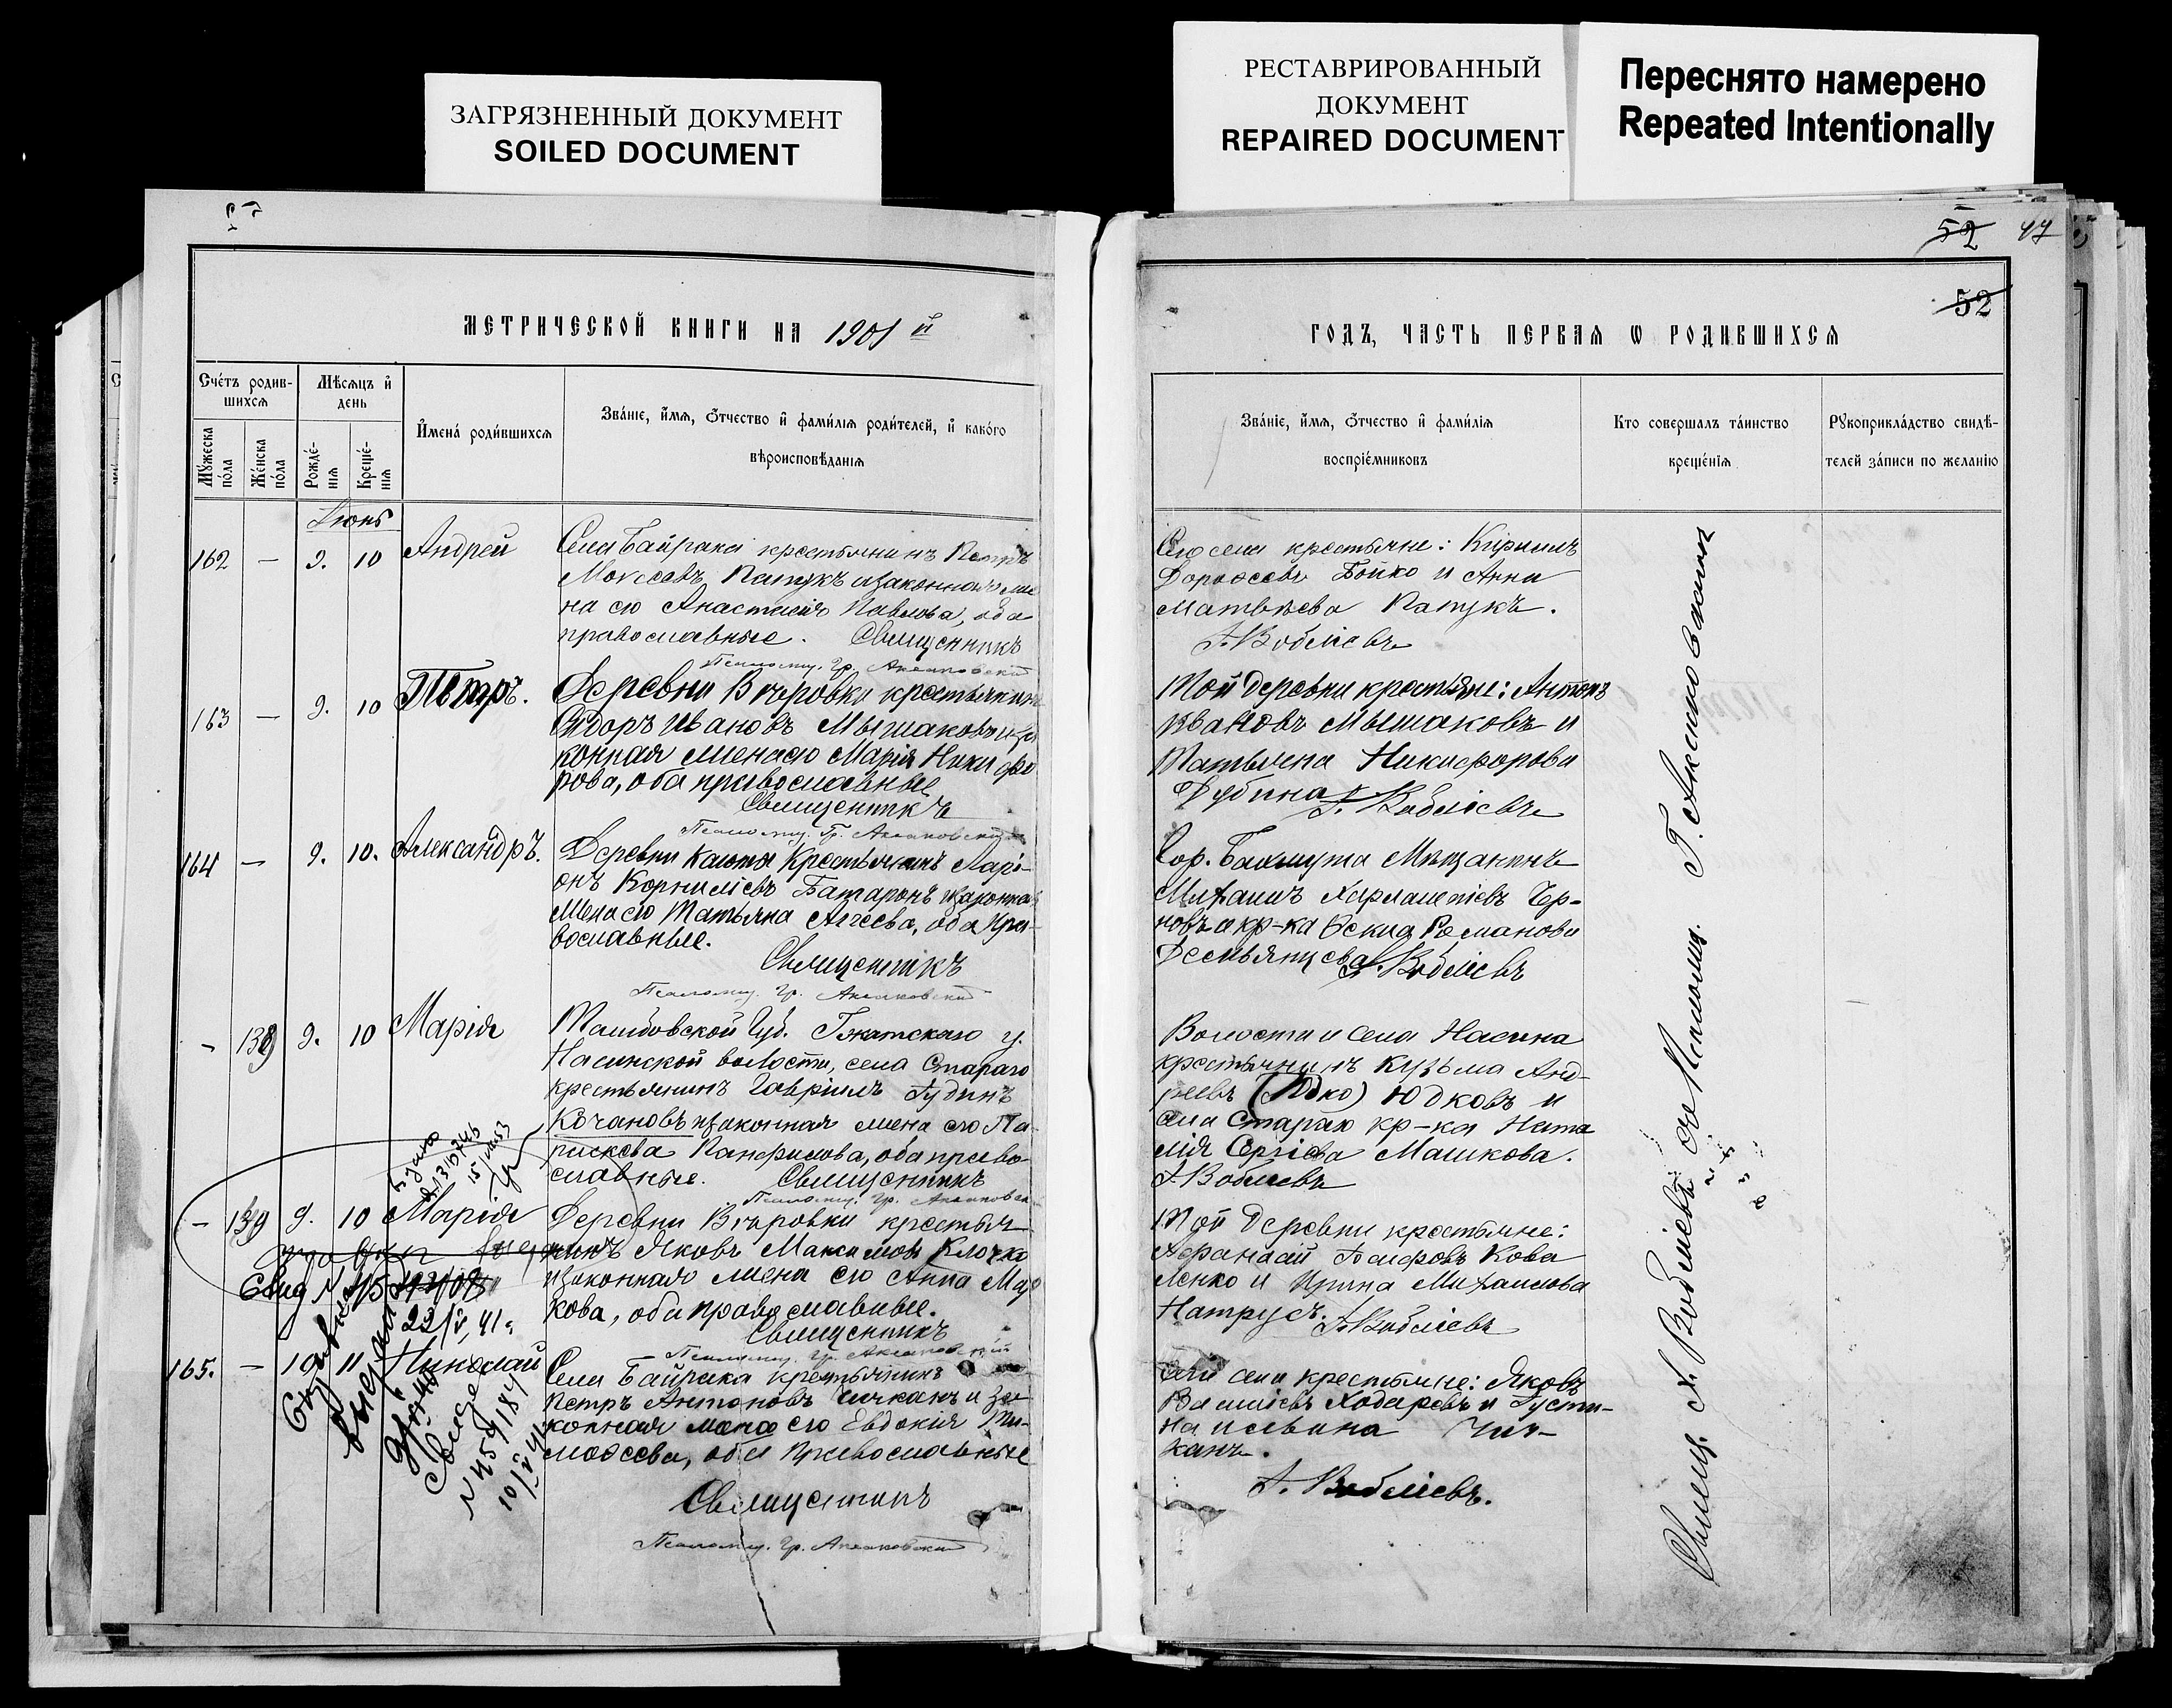 ЗАГРЯЗНЕННЫЙ ДОКУМЕНТ
SOILED DOCUMENT
РЕСТАВРИРОВАННЫЙ
ДОКУМЕНТ
REPAIRED DOCUMENT
Переснято намерено
Repeated Intentionally
52 47
52
МЕТРИЧЕСКОЙ КНИГИ НА 1901 й
Счетъ родив-
шихся
Мѣсяцъ и
день
Мужеска
пола
Женска
пола
Рожде-
нія
Креще-
нія
Имена родившихся
Званіе, имя, отчество и фамилія родителей, и какого
вѣроисповѣданія
Іюнь
162 — 9. 10 Андрей
Села Байрака крестьянинъ Петръ
Моѵсеевъ Пащукъ и законная же
на его Анастасія Павлова, оба
православные. Священникъ
Псаломщ. Гр. Аксаковскій
163 — 9. 10 Петръ.
Деревни Вѣровки крестьянинъ
Сидоръ Ивановъ Мышаковъ и за
конная жена его Марія Ники фо
рова, оба православные
Священникъ
Псаломщ. Гр. Аксаковскій
164 — 9. 10. Александръ.
Деревни крестьянинъ Ларі-
онъ Корниліевъ и законная
жена его Татьяна Агѣева, оба пра-
вославные.
Священникъ
Псаломщ. Гр. Аксаковскій
- 138 9. 10 Марія
Тамбовской Губ. у.
волости, села Стараго
крестьянинъ Гавріилъ
Кочановъ и законная жена его Па-
раскева Панфилова, оба право
славные. Священникъ
Псаломщ. Гр. Аксаковск
- 139 9. 10 Марія
Деревни Вѣровки крестья-
нинъ Яковъ Максимовъ Клочко
и законная жена его Анна Мар
кова, оба православные.
Священникъ
Псаломщ. Гр. Аксаковскій
165. — 10 11 Николай
Села Байрака крестьянинъ
Петръ Антоновъ Чичканъ и за-
конная жена его Евдокія Ти-
моѳеева, оба православные
Священникъ
Псаломщ. Гр. Аксаковскій
ГОДЪ, ЧАСТЬ ПЕРВАЯ Ѡ РОДИВШИХСЯ
Званіе, имя, отчество и фамилія
воспріемниковъ
Кто совершалъ таинство
крещенія
Рукоприкладство свидѣ-
телей записи по желанію
Того села крестьяне: Кириллъ
Дороѳеевъ Бойко и Анна
Матвѣева Пащукъ.
А. Вобліевъ
Той деревни крестьяне: Антонъ
Ивановъ Мышаковъ и
Татьяна Никифорова
Дубина А. Вобліевъ
Гор. Бахмута Мѣщанинъ
Михаилъ Харлампіевъ Чер-
новъ и кр-ка Романова
Демьянцева А. Вобліевъ
Волости и села
крестьянинъ Кузьма Анд-
реевъ Юдковъ и
села Стараго кр-ка Ната
лія Сергіева Машкова.
А. Вобліевъ
Той деревни крестьяне:
Аѳанасій Кова
ленко и Ирина Михаилова
Натрусъ. А. Вобліевъ
села крестьяне: Яковъ
Василіевъ Ходаревъ и Густи-
на Ильина Чич-
канъ.
А. Вобліевъ.
Священ. А. Вобліевъ съ Псаломщ. Г. Аксаковскимъ